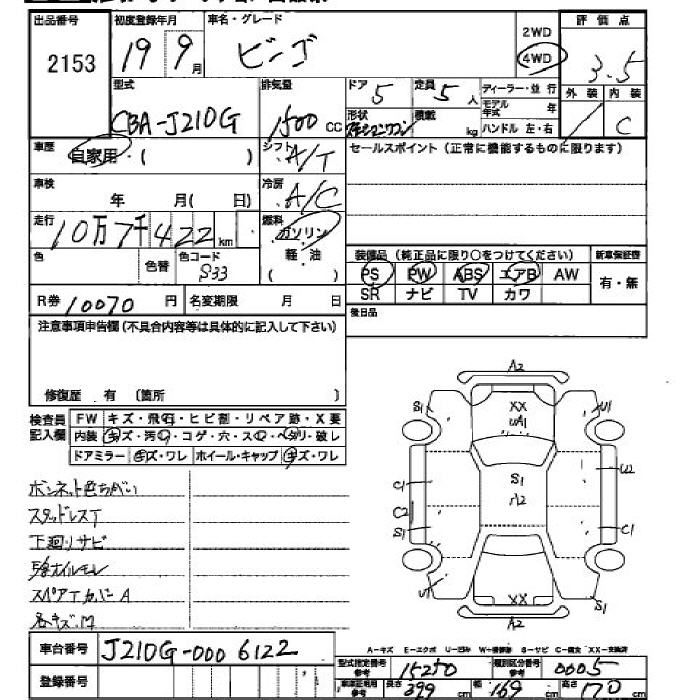 出品番号 初度登録年月 車名・グレード 2WD 評価点
2153 19 9月 ビーゴ 4WD 3.5
型式 排気量 ドア 5 定員 5人 ディーラー・並行 外装 内装
CBA-J210G 1500CC 形状 積載 kg モデル年式 年 C
ハンドル 左・右
車歴 自家用・( ) シフト A/T セールスポイント(正常に機能するものに限ります)
車検 年 月( 日) 冷房 A/C
走行 10万7千422km 燃料 ガソリン
色 色替 色コード S33 軽・油 ( ) 装備品(純正品に限り○をつけてください) 新車保証書
PS PW ABS エアB AW 有・無
R券 10070円 名変期限 月 日 SR ナビ TV カワ
注意事項申告欄(不具合内容等は具体的に記入して下さい) 後日品
修復歴 有 (箇所 )
検査員記入欄 FW キズ・飛石・ヒビ割・リペア跡・X要
内装 キズ・汚・コゲ・穴・スレ・ヘタリ・破し
ドアミラー キズ・ワレ ホイール・キャップ キズ・ワレ
A2
S1 XX U1
UA1
C1 S1 U2
C2 A2
S1 C1
U1 XX S1
A2
ボンネット色ちがい
スタッドレスT
下廻りサビ
スペアTカバーA
各キズ.凹
A-キズ E-エクボ U-凹み W-補修跡 S-サビ C-腐食 XX-交換済
車台番号 J210G-000 6122
型式指定番号参考 15250 類別区分番号参考 0005
登録番号 車庫証明用参考 長さ 399cm 幅 169cm 高さ 170cm